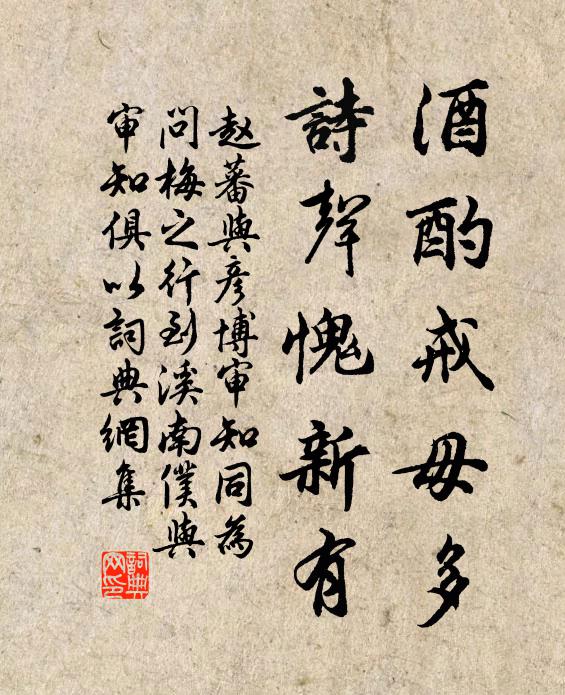 酒酌戒毋多
詩聲愧新有
赵蕃與彦博审知同為
問梅之行到溪南僕與
审知俱以詞典網集
詞典
网印